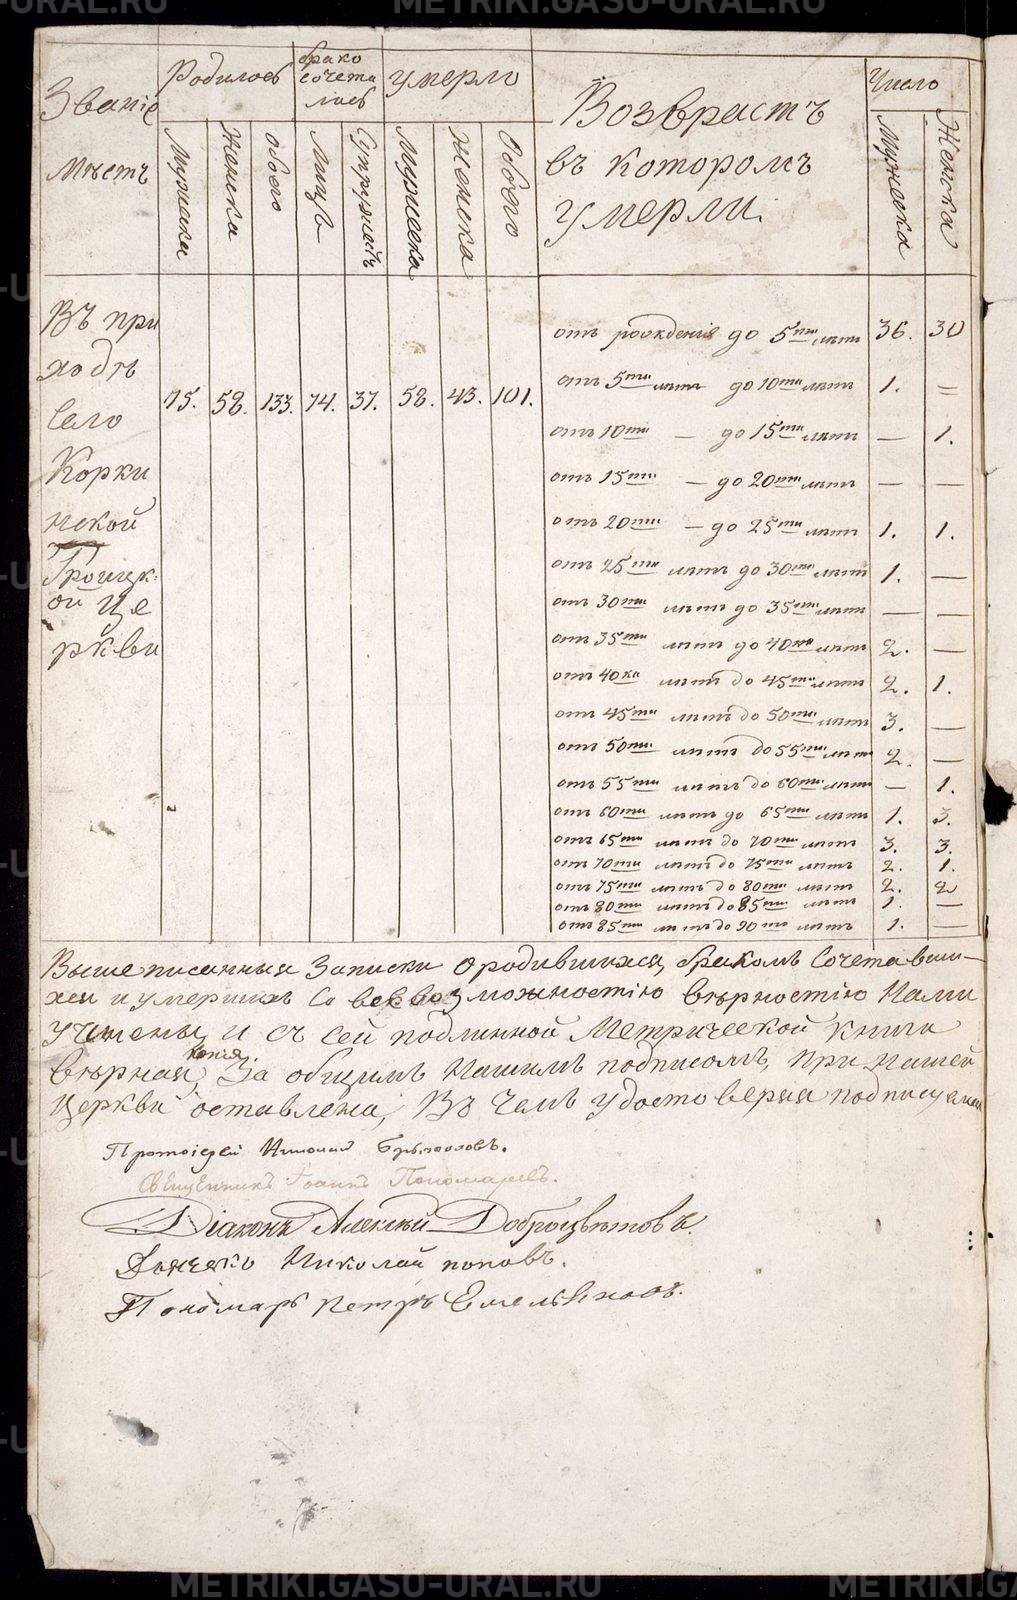 METRIKI.GASU-URAL.RU
Званіе Мѣстъ
Родилось
брако сочета лось
умерло
Возврастъ въ которомъ умерли.
Число
Мужеска
Женска
обоего
Лицъ
Супружествъ
Мужеска
Женска
Обоего
Мужеска
Женска
Въ при
ходѣ
Село
Корки
нской
Троицк-
ой Це
ркви
75. 58. 133. 74. 37. 58. 43. 101.
отъ рожденія до 5ти лѣтъ 36. 30
отъ 5ти лѣтъ до 10ти лѣтъ 1. =
отъ 10ти — до 15ти лѣтъ — 1.
отъ 15ти — до 20ти лѣтъ — —
отъ 20ти — до 25ти лѣтъ 1. 1.
отъ 25ти лѣтъ до 30ти лѣтъ 1. —
отъ 30ти лѣтъ до 35ти лѣтъ — —
отъ 35ти лѣтъ до 40ка лѣтъ 2. —
отъ 40ка лѣтъ до 45ти лѣтъ 2. 1.
отъ 45ти лѣтъ до 50ти лѣтъ 3. —
отъ 50ти лѣтъ до 55ти лѣтъ 2. —
отъ 55ти лѣтъ до 60ти лѣтъ — 1.
отъ 60ти лѣтъ до 65ти лѣтъ 1. 3.
отъ 65ти лѣтъ до 70ти лѣтъ 3. 3.
отъ 70ти лѣтъ до 75ти лѣтъ 2. 1.
отъ 75ти лѣтъ до 80ти лѣтъ 2. 2
отъ 80ти лѣтъ до 85ти лѣтъ 1. —
отъ 85ти лѣтъ до 90то лѣтъ 1. —
Вышеписанныя Записки о родившихся, бракомъ Сочетавши-
хся и умершихъ Со всевозможностію вѣрностію Нами
учинены, и съ сей подлинной Метрической книги
вѣрная копія, За общимъ Нашимъ подписомъ, при Нашей
Церкви оставлена, Въ Чемъ удостоверяя подписуемся
Протоіерей Николай
Священникъ Іоаннъ Пономаревъ.
Діаконъ Алексѣй Доброцвѣтовъ.
Дьячекъ Николай поповъ.
Пономарь Петръ Емельяновъ.
METRIKI.GASU-URAL.RU